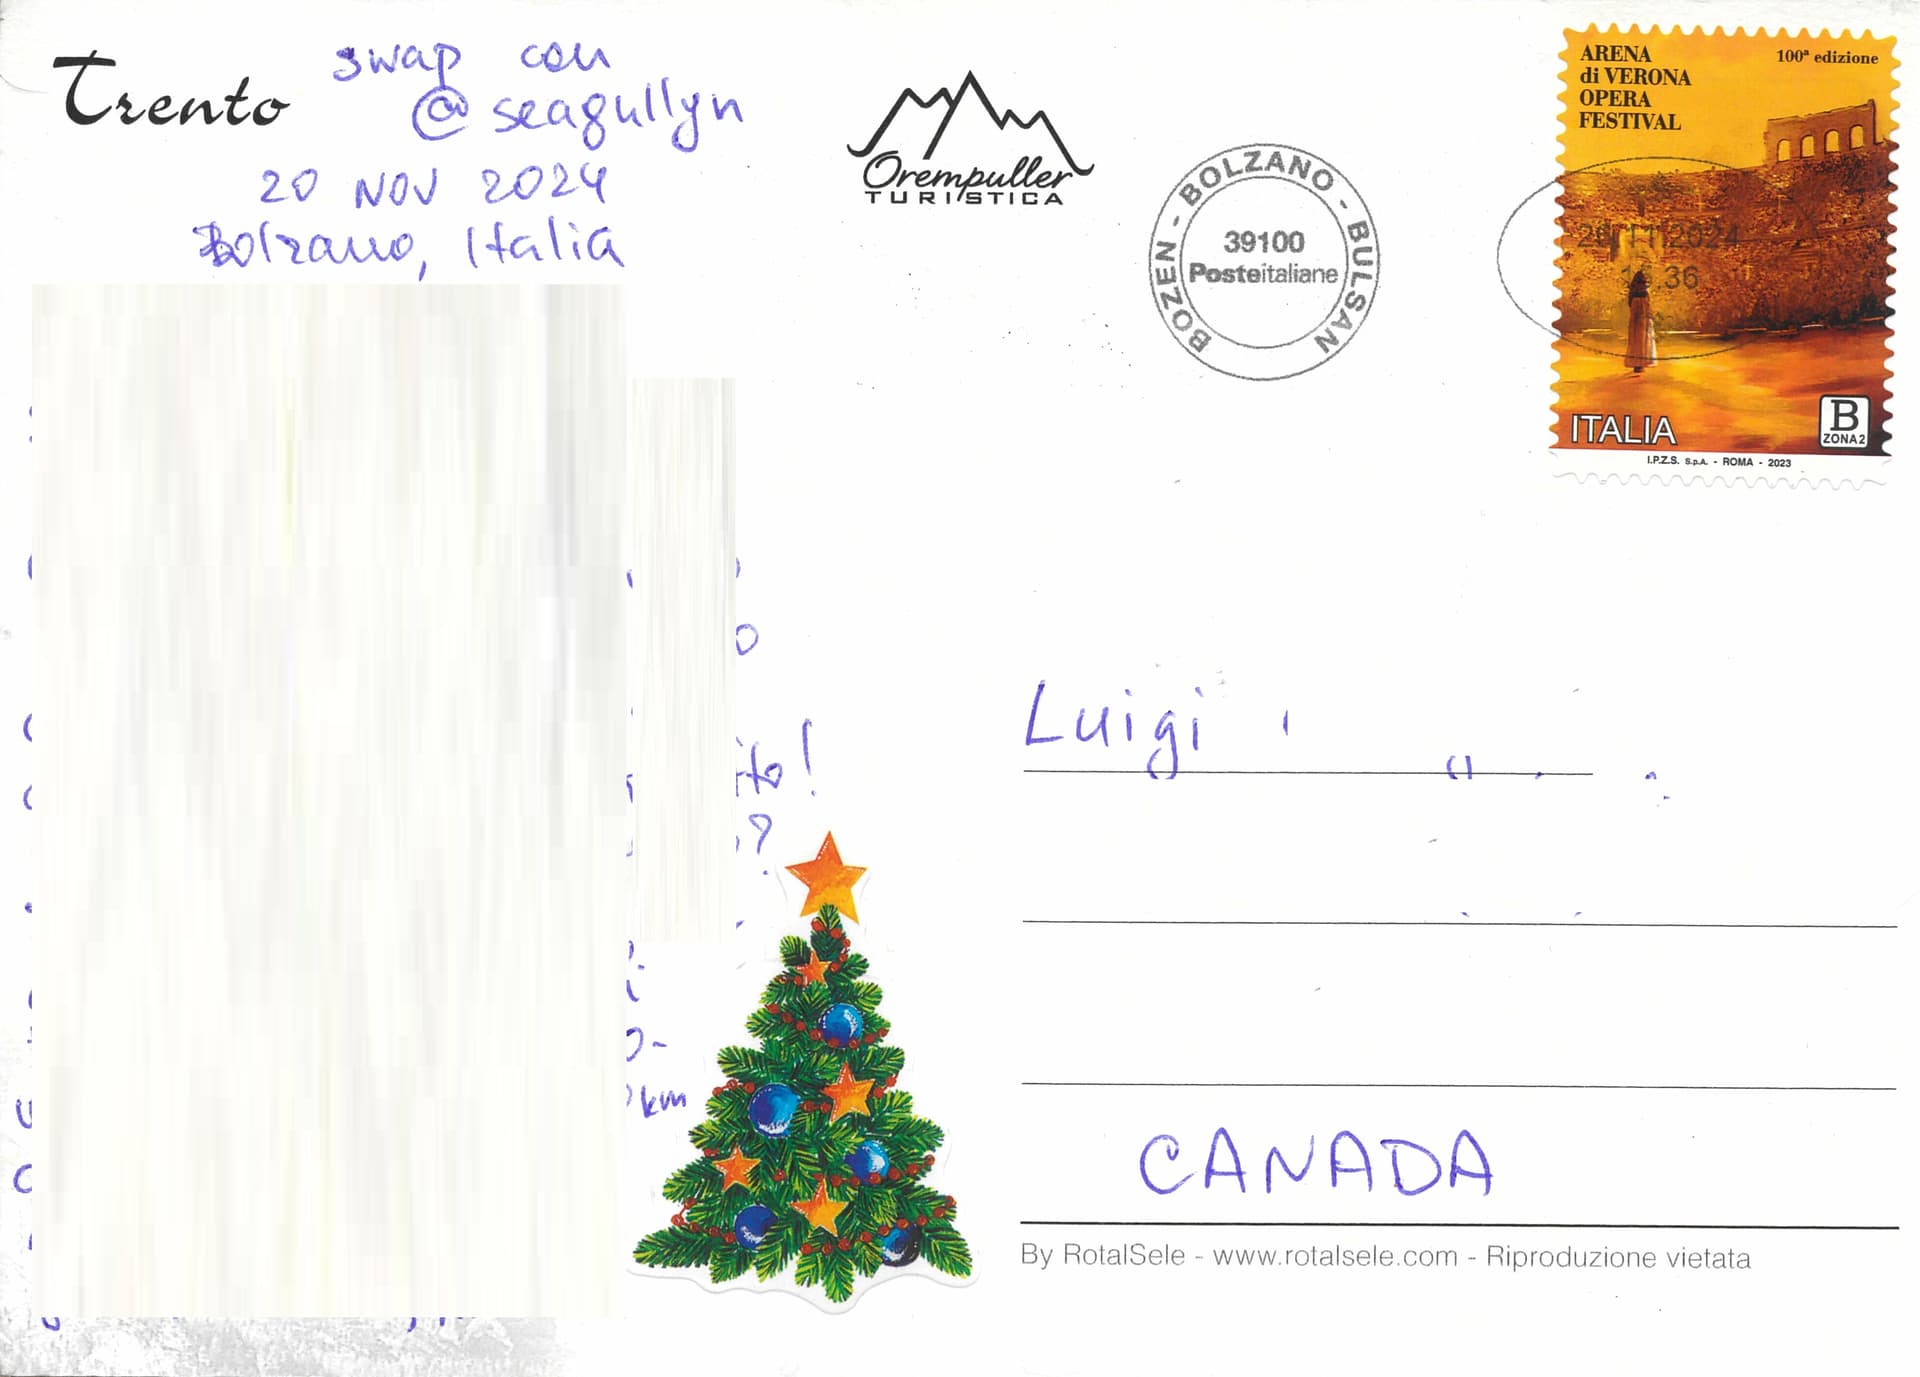 Trento
swap con
@seagullyn
20 NOV 2024
Bolzano, Italia
Orempuller
TURISTICA
BOZEN - BOLZANO - BULSAN
39100
Posteitaliane
ARENA
di VERONA
OPERA
FESTIVAL
100ª edizione
11 2024
36
ITALIA
B
ZONA 2
I.P.Z.S. S.p.A. - ROMA - 2023
km
Luigi
CANADA
By RotalSele - www.rotalsele.com - Riproduzione vietata